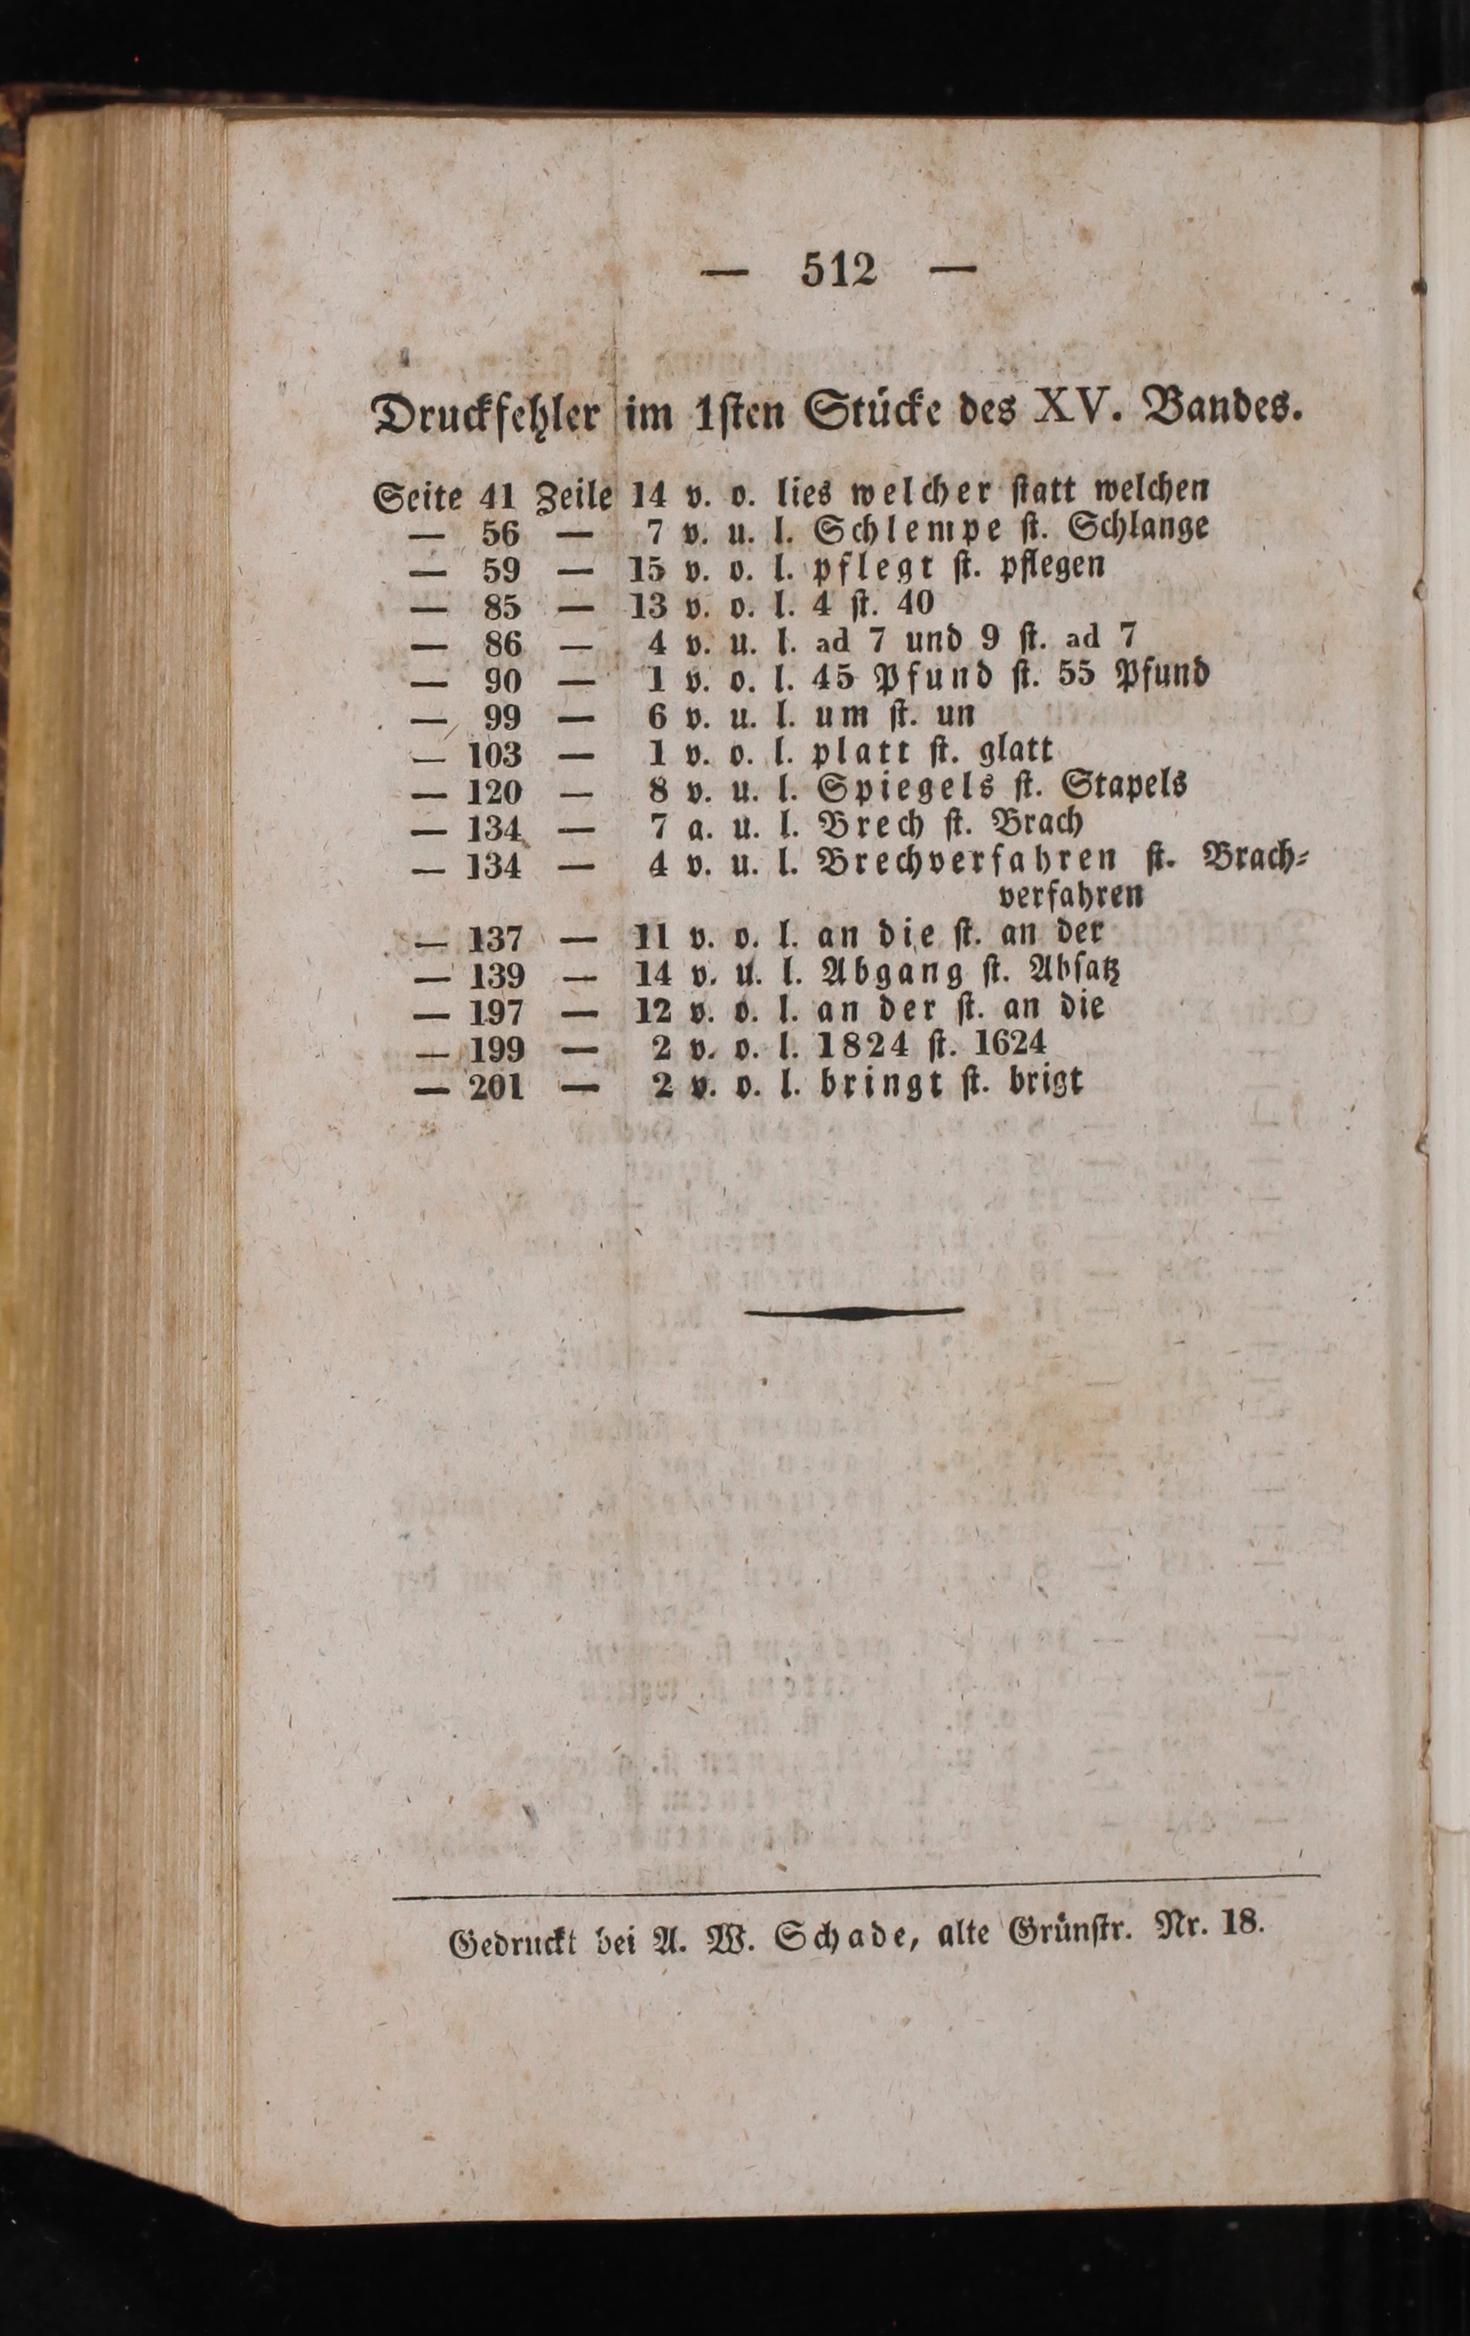 — 512 —
Druckfehler im 1sten Stücke des XV. Bandes.
Seite 41 Zeile 14 v. o. lies welcher statt welchen
— 56 — 7 v. u. l. Schlempe st. Schlange
— 59 — 15 v. o. l. pflegt st. pflegen
— 85 — 13 v. o. l. 4 st. 40
— 86 — 4 v. u. l. ad 7 und 9 st. ad 7
— 90 — 1 v. o. l. 45 Pfund st. 55 Pfund
— 99 — 6 v. u. l. um st. un
— 103 — 1 v. o. l. platt st. glatt
— 120 — 8 v. u. l. Spiegels st. Stapels
— 134 — 7 a. u. l. Brech st. Brach
— 134 — 4 v. u. l. Brechverfahren st. Brach-
verfahren
— 137 — 11 v. o. l. an die st. an der
— 139 — 14 v. u. l. Abgang st. Absatz
— 197 — 12 v. o. l. an der st. an die
— 199 — 2 v. o. l. 1824 st. 1624
— 201 — 2 v. o. l. bringt st. brigt
Gedruckt bei A. W. Schade, alte Grünstr. Nr. 18.